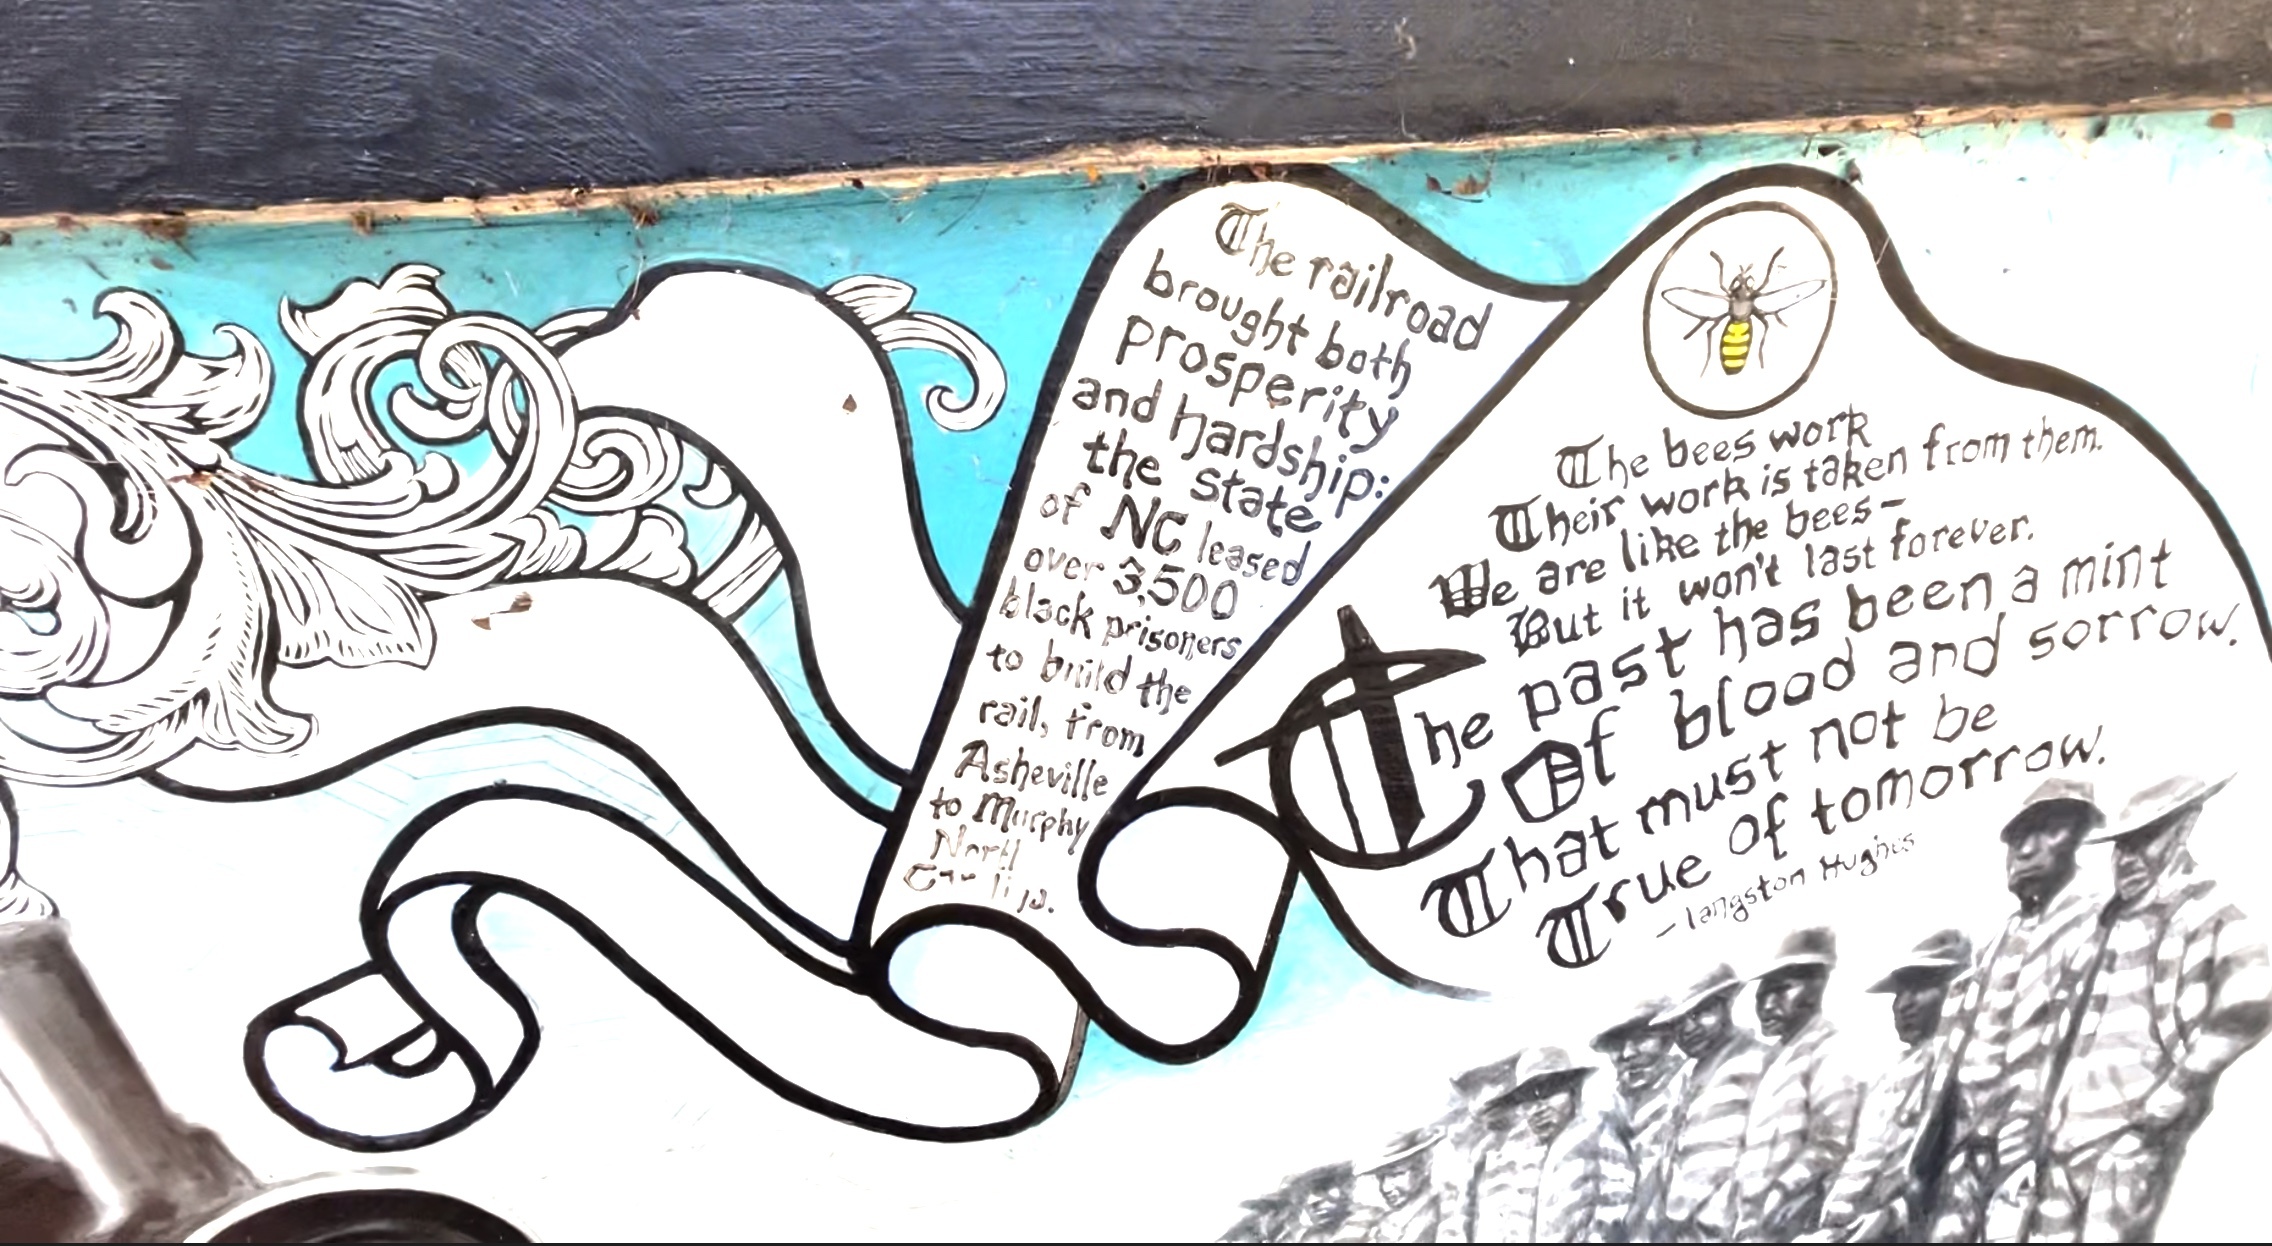 The railroad
brought both
prosperity
and hardship:
the state
of NC leased
over 3,500
black prisoners
to build the
rail, from
Asheville
to Murphy
North
Carolina.
The bees work
Their work is taken from them.
We are like the bees-
But it won't last forever.
The past has been a mint
Of blood and sorrow.
That must not be
True of tomorrow.
- langston Hughes